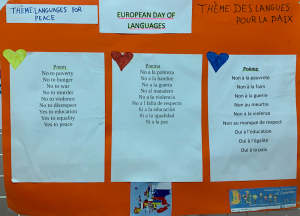 THÈME: LANGUAGES FOR PEACE
EUROPEAN DAY OF
LANGUAGES
THÈME DES LANGUES
POUR LA PAIX
Poem
No to poverty
No to hunger
No to war
No to murder
No to violence
No to disrespect
Yes to education
Yes to equality
Yes to peace
Poema
No a la pobreza
No a la hambre
No a la guerra
No al matadero
No a la violencia
No a l falta de respecto
Si a la educación
Si a la igualidad
Si a la paz
Poème
Non à la pauvreté
Non à la faim
Non à la guerre
Non au meurtre
Non à la violence
Non au manque de respect
Oui à l'éducation
Oui à l'égalité
Oui à la paix